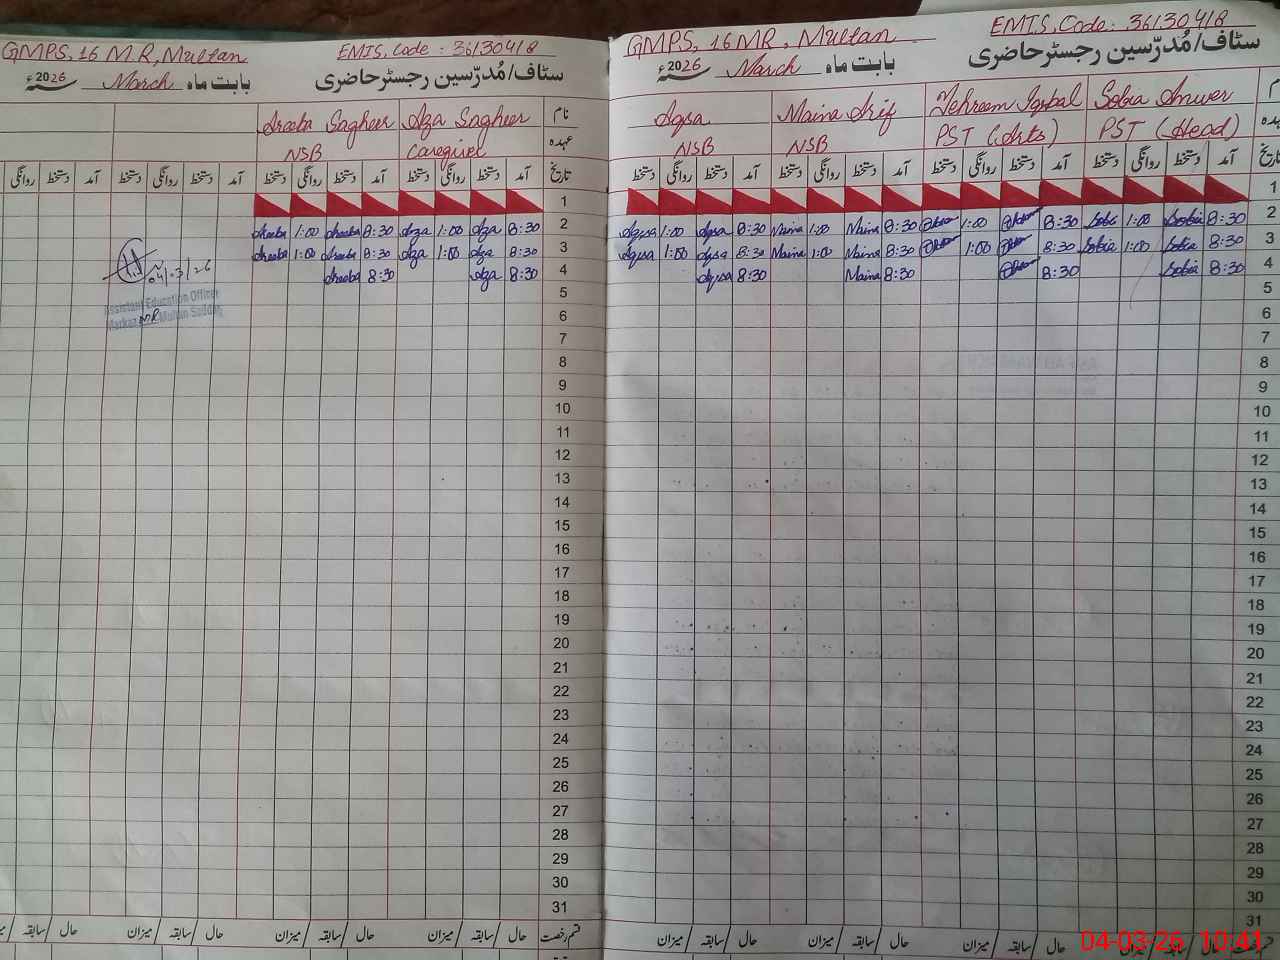 GMPS, 16 M.R, Multan EMIS, Code : 36130418
سٹاف/مُدرّسین رجسٹر حاضری بابت ماہ March 2026ء
نام Aza Sagheer Areeba Sagheer
عہدہ Caregiver NSB
تاریخ آمد دستخط روانگی دستخط آمد دستخط روانگی دستخط آمد دستخط روانگی دستخط آمد دستخط روانگی
1
2 8:30 Aza 1:00 Aza 8:30 Areeba 1:00 Areeba
3 8:30 Aza 1:00 Aza 8:30 Areeba 1:00 Areeba
4 8:30 Aza 8:30 Areeba
5
6
7
8
9
10
11
12
13
14
15
16
17
18
19
20
21
22
23
24
25
26
27
28
29
30
31
04/03/26
Assistant Education Officer
Markaz MR Multan Saddar
قسم رخصت حال سابقہ میزان حال سابقہ میزان حال سابقہ میزان حال سابقہ
GMPS, 16 MR, Multan EMIS, Code: 36130418
سٹاف/مُدرّسین رجسٹر حاضری بابت ماہ March 2026ء
Sobia Anwer Tehreem Iqbal Maina Arif Aqsa
PST (Head) PST (Arts) NSB NSB
تاریخ آمد دستخط روانگی دستخط آمد دستخط روانگی دستخط آمد دستخط روانگی دستخط آمد دستخط روانگی دستخط
1
2 8:30 Sobia 1:00 Sobia 8:30 1:00 8:30 Maina 1:00 Maina 8:30 Aqsa 1:00 Aqsa
3 8:30 Sobia 1:00 Sobia 8:30 1:00 8:30 Maina 1:00 Maina 8:30 Aqsa 1:00 Aqsa
4 8:30 Sobia 8:30 8:30 Maina 8:30 Aqsa
5
6
7
8
9
10
11
12
13
14
15
16
17
18
19
20
21
22
23
24
25
26
27
28
29
30
31
حال سابقہ میزان حال سابقہ میزان حال سابقہ میزان حال سابقہ میزان
04-03-26 10:41